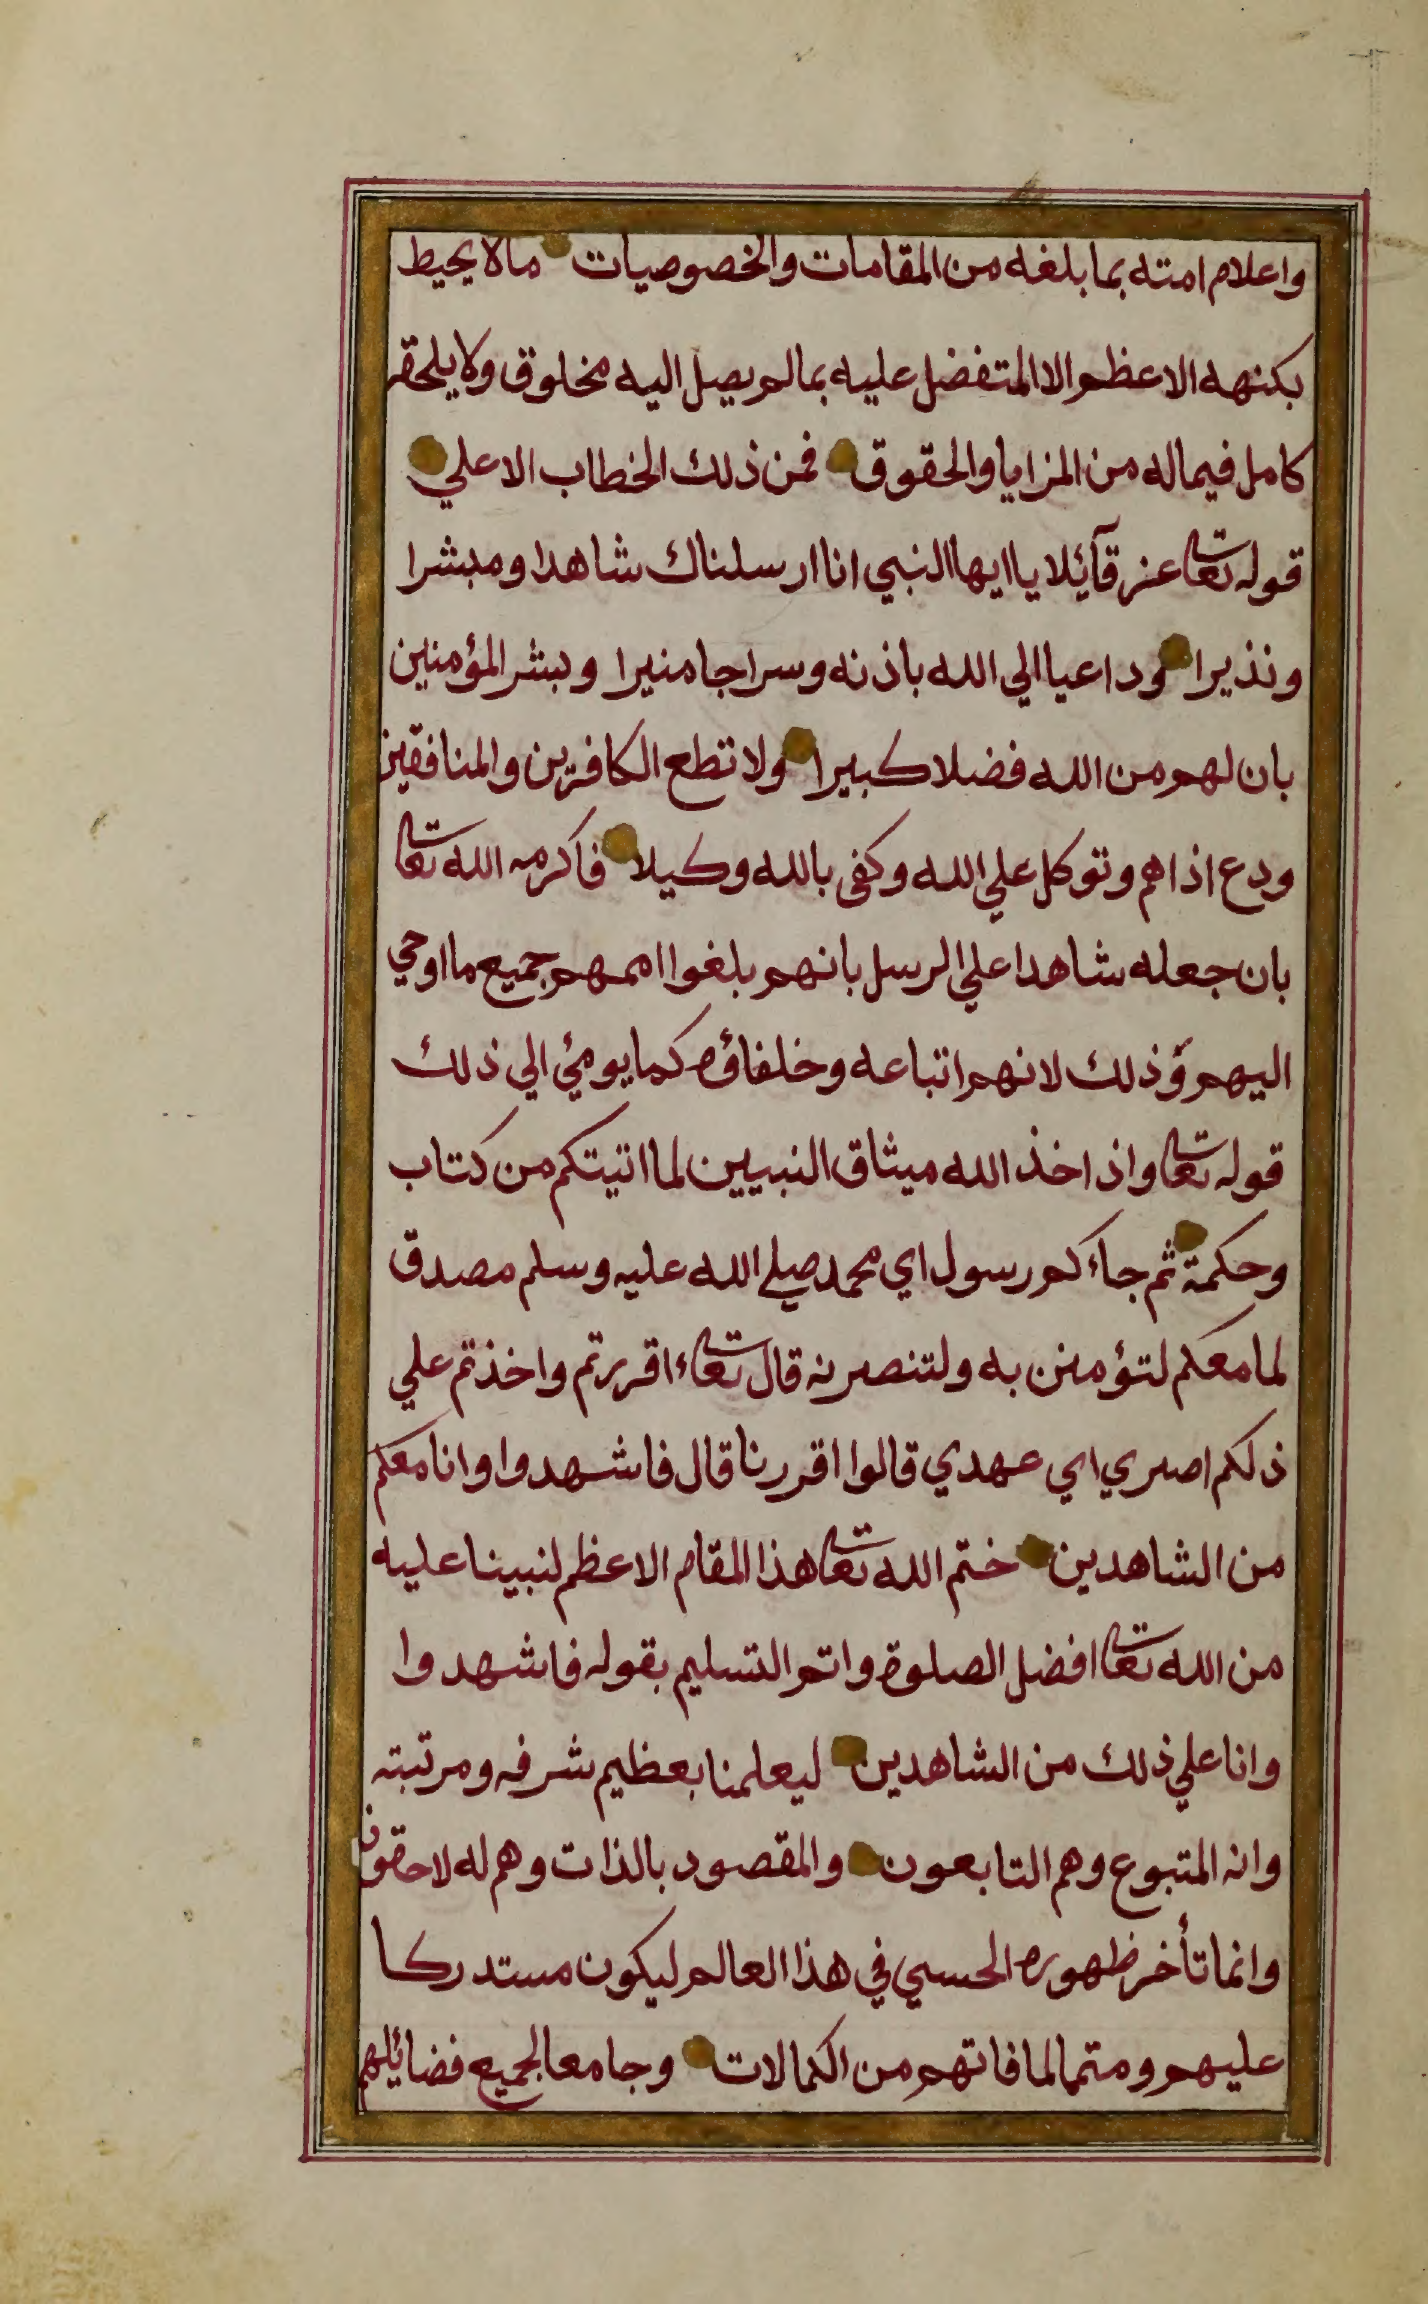 واعلام امته بما بلغه من المقامات والخصوصيات مالا يحيط
بكنهه الاعظم الا المتفضل عليه بما لم يصل اليه مخلوق ولا يلحقه
كامل فيماله من المزايا والحقوق فمن ذلك الخطاب الاعلي
قوله تعا عز قآئلا يا ايها النبي انا ارسلناك شاهدا ومبشرا
ونذيرا وداعيا الي الله باذنه وسراجا منيرا وبشر المؤمنين
بان لهم من الله فضلا كبيرا ولا تطع الكافرين والمنافقين
ودع اذاهم وتوكل علي الله وكفى بالله وكيلا فاكرمه الله تعا
بان جعله شاهدا علي الرسل بانهم بلغوا اممهم جميع ما اوحي
اليهم وذلك لانهم اتباعه وخلفاؤه كما يومئ الي ذلك
قوله تعا واذ اخذ الله ميثاق النبيين لما اتيتكم من كتاب
وحكمة ثم جاءكم رسول اي محمد صلي الله عليه وسلم مصدق
لما معكم لتؤمنن به ولتنصرنه قال تعا ءاقررتم واخذتم علي
ذلكم اصري اي عهدي قالوا اقررنا قال فاشهدوا وانا معكم
من الشاهدين ختم الله تعا هذا المقام الاعظم لنبينا عليه
من الله تعا افضل الصلوة واتم التسليم بقوله فاشهدوا
وانا علي ذلك من الشاهدين ليعلمنا بعظيم شرفه ومرتبته
وانه المتبوع وهم التابعون والمقصود بالذات وهم له لاحقون
وانما تأخر ظهوره الحسي في هذا العالم ليكون مستدركا
عليهم ومتمما لما فاتهم من الكمالات وجامعا لجميع فضائلهم